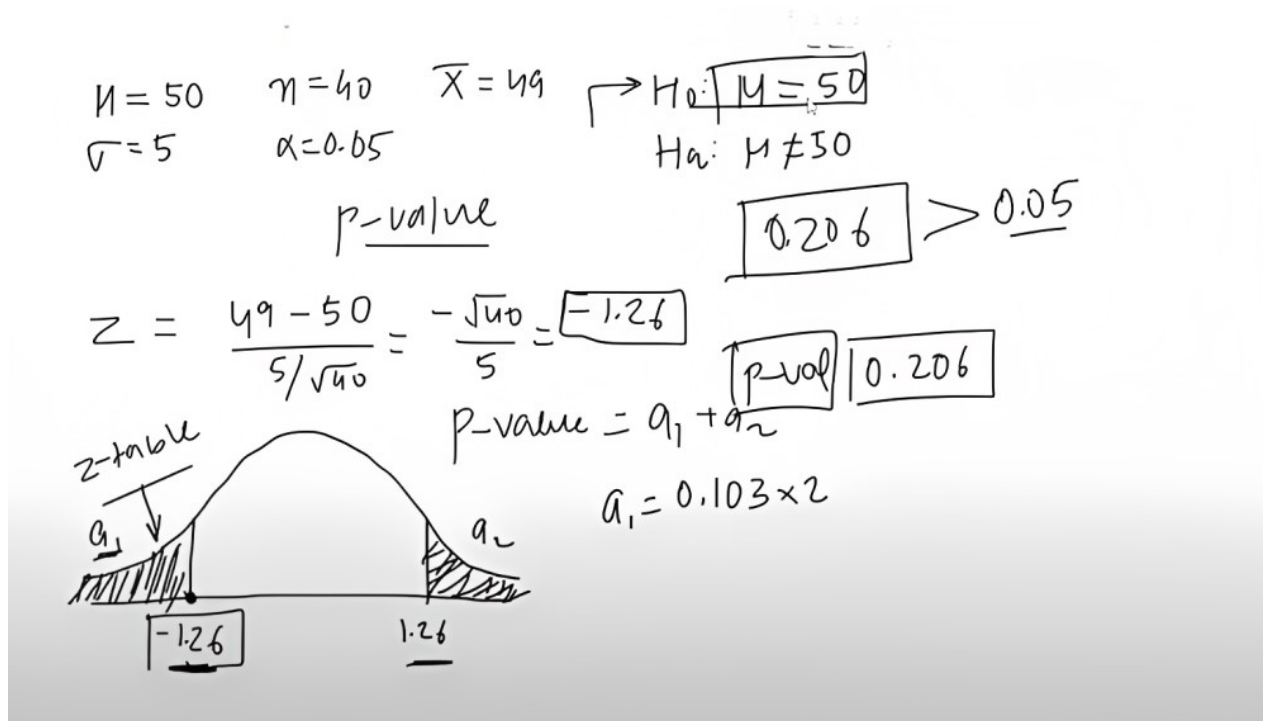 μ = 50 n = 40 X̅ = 49
σ = 5 α = 0.05
H₀: μ = 50
Ha: μ ≠ 50
p-value
0.206 > 0.05
Z = (49 - 50) / (5/√40) = -√40 / 5 = -1.26
p-val 0.206
p-value = a₁ + a₂
a₁ = 0.103 × 2
z-table
a₁ a₂
-1.26 1.26